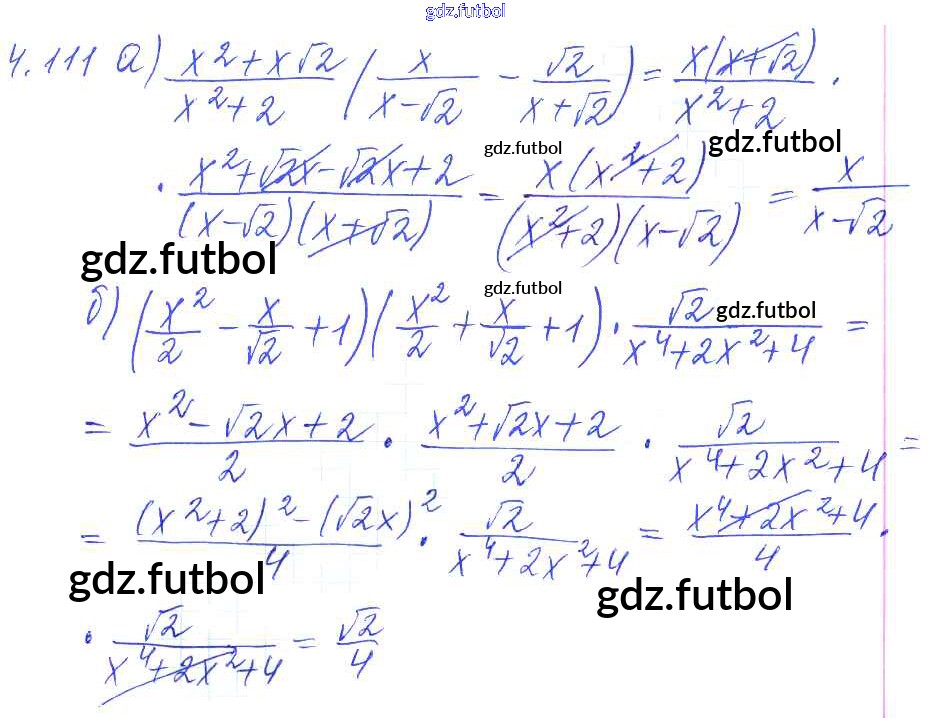 gdz.futbol
4.111 а) \frac{x^2+x\sqrt{2}}{x^2+2} (\frac{x}{x-\sqrt{2}} - \frac{\sqrt{2}}{x+\sqrt{2}}) = \frac{x(x+\sqrt{2})}{x^2+2} ·
gdz.futbol gdz.futbol
· \frac{x^2+\sqrt{2}x-\sqrt{2}x+2}{(x-\sqrt{2})(x+\sqrt{2})} = \frac{x(x^2+2)}{(x^2+2)(x-\sqrt{2})} = \frac{x}{x-\sqrt{2}}
gdz.futbol
gdz.futbol gdz.futbol
б) (\frac{x^2}{2} - \frac{x}{\sqrt{2}} + 1)(\frac{x^2}{2} + \frac{x}{\sqrt{2}} + 1) · \frac{\sqrt{2}}{x^4+2x^2+4} =
= \frac{x^2-\sqrt{2}x+2}{2} · \frac{x^2+\sqrt{2}x+2}{2} · \frac{\sqrt{2}}{x^4+2x^2+4} =
= \frac{(x^2+2)^2-(\sqrt{2}x)^2}{4} · \frac{\sqrt{2}}{x^4+2x^2+4} = \frac{x^4+2x^2+4}{4} ·
gdz.futbol gdz.futbol
· \frac{\sqrt{2}}{x^4+2x^2+4} = \frac{\sqrt{2}}{4}